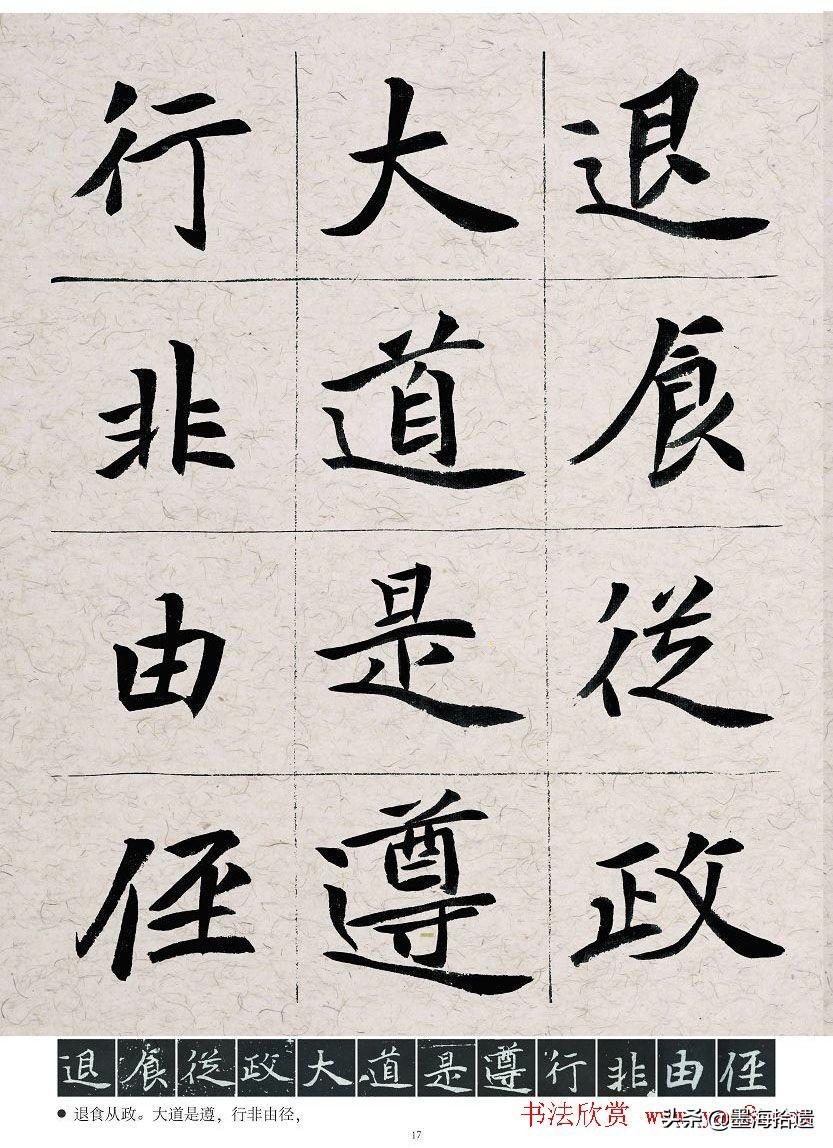 退食從政
大道是遵
行非由侄
退食從政大道是遵行非由侄
● 退食从政。大道是遵，行非由径，
书法欣赏
头条@墨海拾遗
17